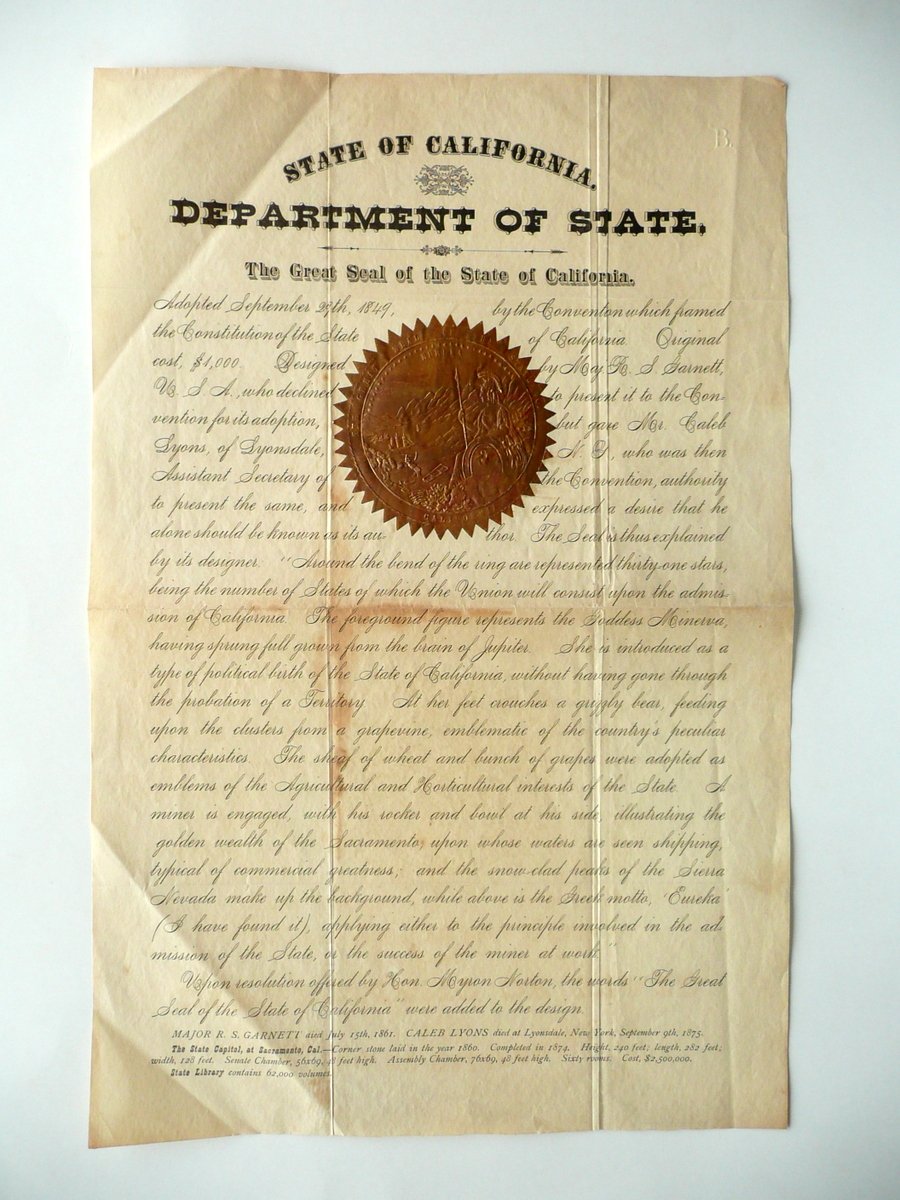 B.
STATE OF CALIFORNIA.
DEPARTMENT OF STATE.
The Great Seal of the State of California.
Adopted September 29th, 1849, by the Conventon which framed
the Constitution of the State of California. Original
cost, $1,000. Designed by Maj R. S. Garnett,
U. S. A., who declined to present it to the Con-
vention for its adoption, but gave Mr. Caleb
Lyons, of Lyonsdale, N. Y., who was then
Assistant Secretary of the Convention, authority
to present the same, and expressed a desire that he
alone should be known as its au- thor. The Seal is thus explained
by its designer. "Around the bend of the ring are represented thirty-one stars,
being the number of States of which the Union will consist upon the admis-
sion of California. The foreground figure represents the Goddess Minerva,
having sprung full grown from the brain of Jupiter. She is introduced as a
type of political birth of the State of California, without having gone through
the probation of a Territory. At her feet crouches a grizzly bear, feeding
upon the clusters from a grapevine, emblematic of the country's peculiar
characteristics. The sheaf of wheat and bunch of grapes were adopted as
emblems of the Agricultural and Horticultural interests of the State. A
miner is engaged, with his rocker and bowl at his side, illustrating the
golden wealth of the Sacramento, upon whose waters are seen shipping,
typical of commercial greatness; and the snow-clad peaks of the Sierra
Nevada make up the background, while above is the Greek motto, 'Eureka'
(I have found it), applying either to the principle involved in the ad-
mission of the State, or the success of the miner at work."
Upon resolution offered by Hon. Myron Norton, the words "The Great
Seal of the State of California" were added to the design.
MAJOR R. S. GARNETT died July 15th, 1861. CALEB LYONS died at Lyonsdale, New York, September 9th, 1875.
The State Capitol, at Sacramento, Cal.—Corner stone laid in the year 1860. Completed in 1874. Height, 240 feet; length, 282 feet;
width, 128 feet. Senate Chamber, 56x69, 48 feet high. Assembly Chamber, 76x69, 48 feet high. Sixty rooms. Cost, $2,500,000.
State Library contains 62,000 volumes.